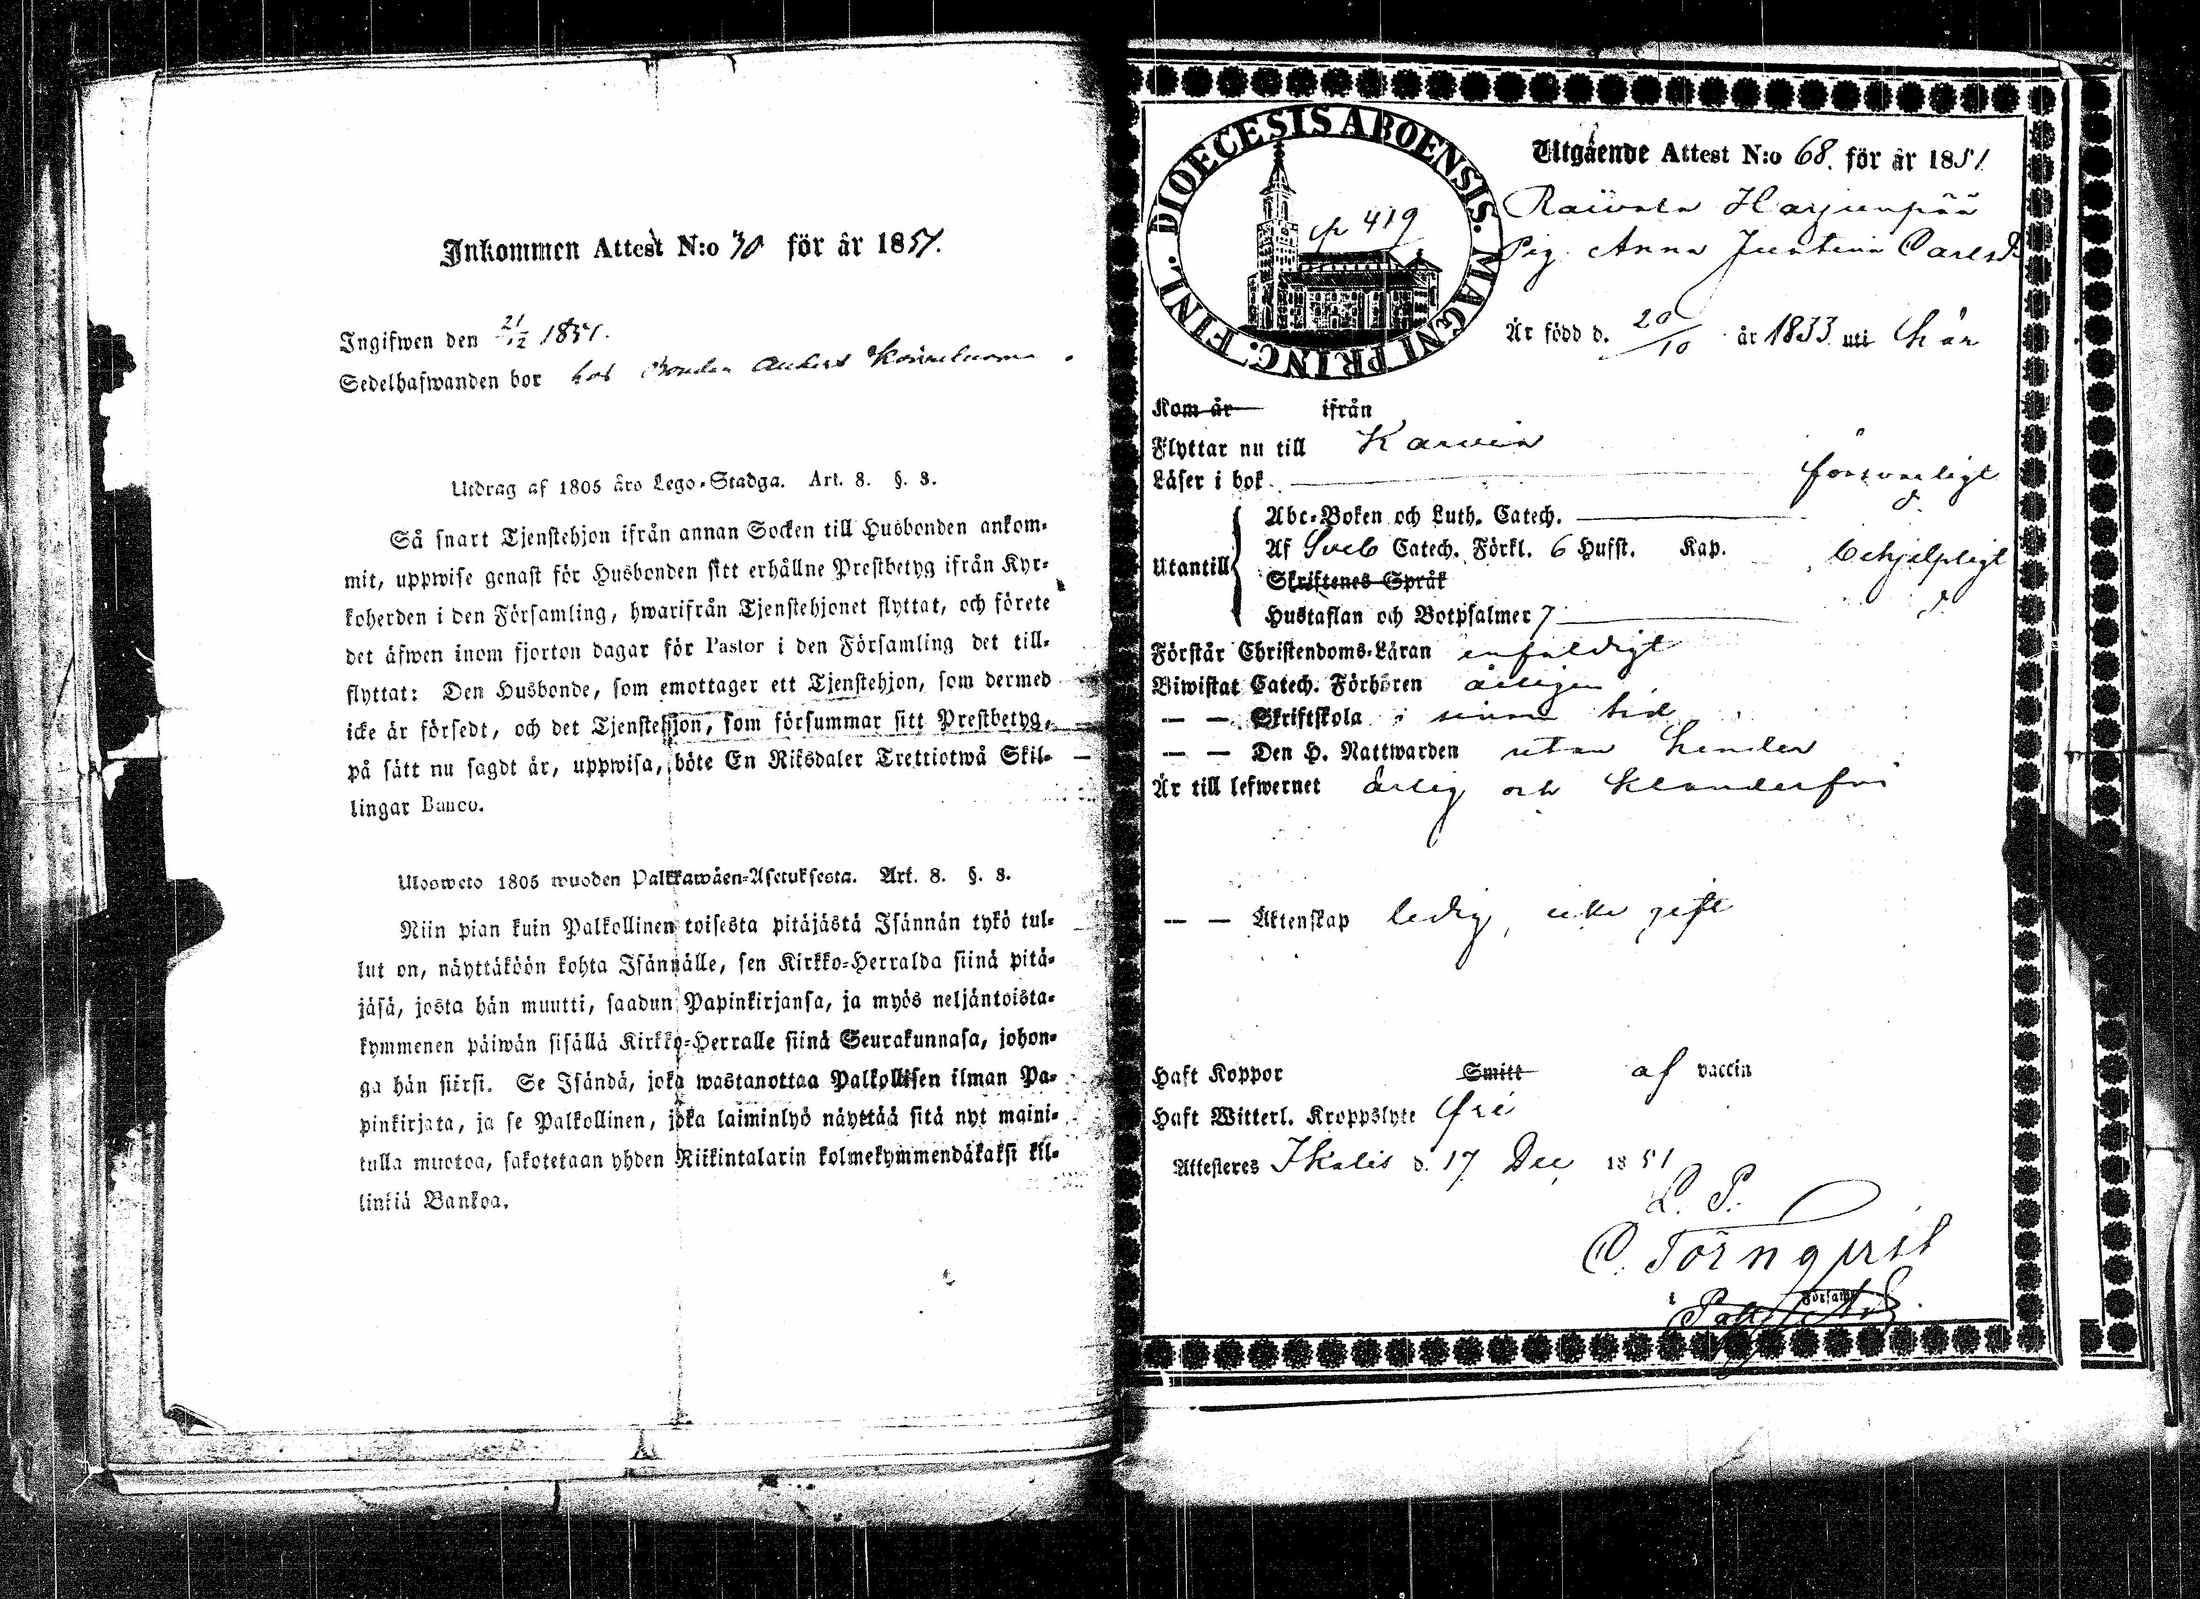 Inkommen Attest N:o 30 för år 1851.
Ingifwen den 21/12 1851.
Sedelhafwanden bor hos Bonden Anders
Utdrag af 1805 års Lego-Stadga. Art. 8. §. 3.
Så snart Tjenstehjon ifrån annan Socken till Husbonden ankom-
mit, uppwise genast för Husbonden sitt erhållne Prestbetyg ifrån Kyr-
koherden i den Församling, hwarifrån Tjenstehjonet flyttat, och förete
det äfwen inom fjorton dagar för Pastor i den Församling det till-
flyttat: Den Husbonde, som emottager ett Tjenstehjon, som dermed
icke är försedt, och det Tjenstehjon, som försummar sitt Prestbetyg,
på sätt nu sagdt är, uppwisa, böte En Riksdaler Trettiotwå Skil-
lingar Banco.
Ulosweto 1805 wuoden Palkkawäen-Asetuksesta. Art. 8. §. 3.
Niin pian kuin Palkollinen toisesta pitäjästä Isännän tykö tul-
lut on, näyttäköön kohta Isännälle, sen Kirkko-Herralda siinä pitä-
jäsä, josta hän muutti, saadun Papinkirjansa, ja myös neljäntoista-
kymmenen päiwän sisällä Kirkko-Herralle siinä Seurakunnasa, johon-
ga hän siirsi. Se Isändä, joka wastanottaa Palkollisen ilman Pa-
pinkirjata, ja se Palkollinen, joka laiminlyö näyttää sitä nyt maini-
tulla muotoa, sakotetaan yhden Riikintalarin kolmekymmendäkaksi kil-
linkiä Bankoa.
DIOECESIS ABOENSIS. MAGNI PRINC. FINL.
p 419
Utgående Attest N:o 68. för år 1851
Raivala Harjunpää
Pig. Anna Justina Carlsd
Är född d. 20/10 år 1833 uti här
Kom år ifrån
Flyttar nu till Karvia
Läser i bok försvarligt
Abc-Boken och Luth. Catech.
Utantill Af Sveb Catech. Förkl. 6 Hufst. Kap. behjelpligt
Skriftenes Språk
Hustaflan och Botpsalmer 7
Förstår Christendoms-Läran enfaldigt
Biwistat Catech. Förhören årligen
— — Skriftskola i sinom tid
— — Den H. Nattwarden utan hinder
Är till lefwernet ärlig och klanderfri
— — Äktenskap ledig, icke gift
Haft Koppor Smitt af vaccin
Haft Witterl. Kroppslyte fri
Attesteres Ikalis d. 17 Dec 1851
L. P.
O. Törnqvist
i Församl.